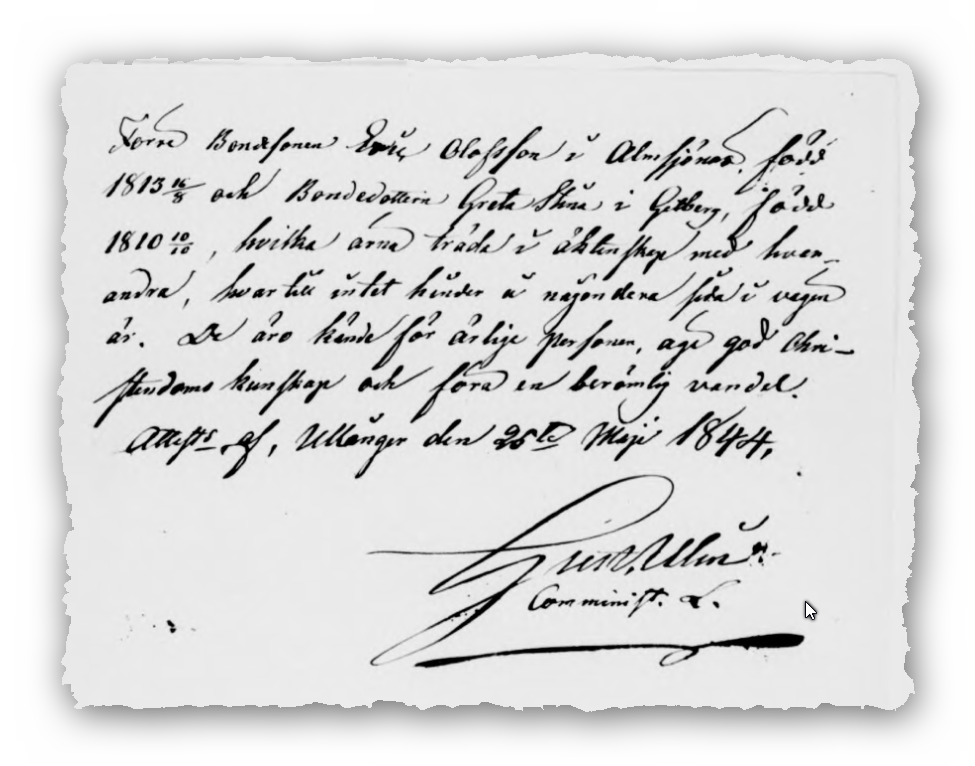 Förre Bondesonen Eric Olofsson i Almsjönäs, född
1813 16/8 och Bondedottern Greta Stina i Getberg, född
1810 10/10, hvilka ärna träda i äktenskap med hvar-
andra, hvartill intet hinder å någondera sida i vägen
är. De äro kände för ärlige personer, äga god Chri-
stendoms kunskap och föra en berömlig vandel.
Attests af, Ullånger den 25te Maji 1844,
Comminist. L.